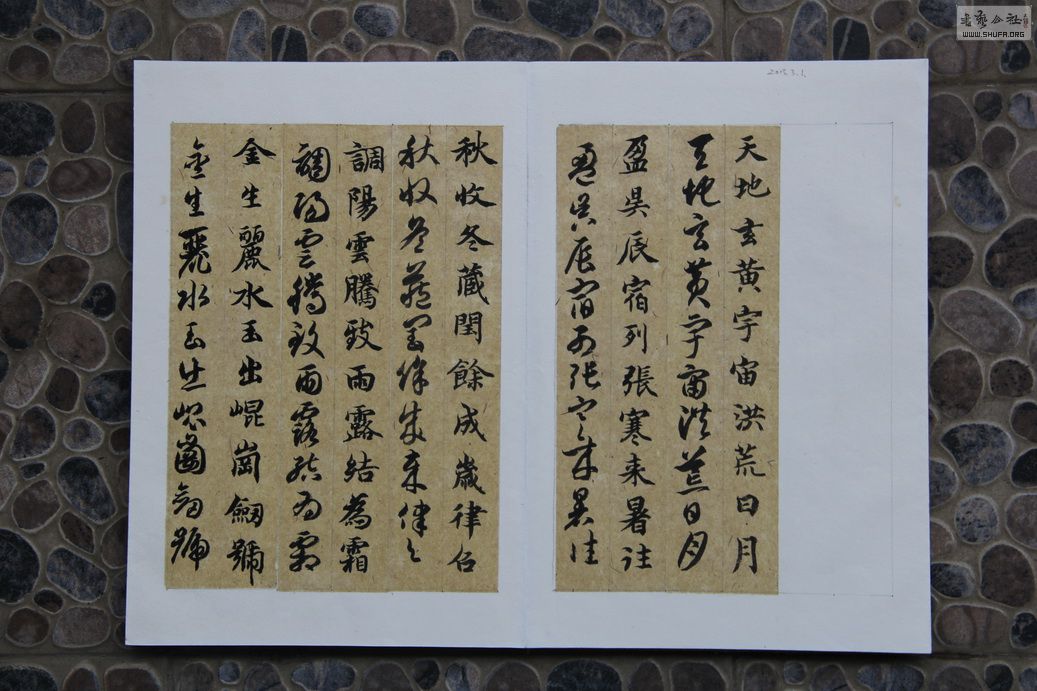 天地玄黃宇宙洪荒日月
天地玄黃宇宙洪荒日月
盈昃辰宿列張寒来暑往
盈昃辰宿列張寒来暑往
秋收冬蔵閏餘成歲律吕
秋收冬蔵閏餘成歲律吕
調陽雲騰致雨露結為霜
調陽雲騰致雨露結為霜
金生麗水玉出崐崗劒號
金生麗水玉出崐崗劒號
书艺公社
WWW.SHUFA.ORG